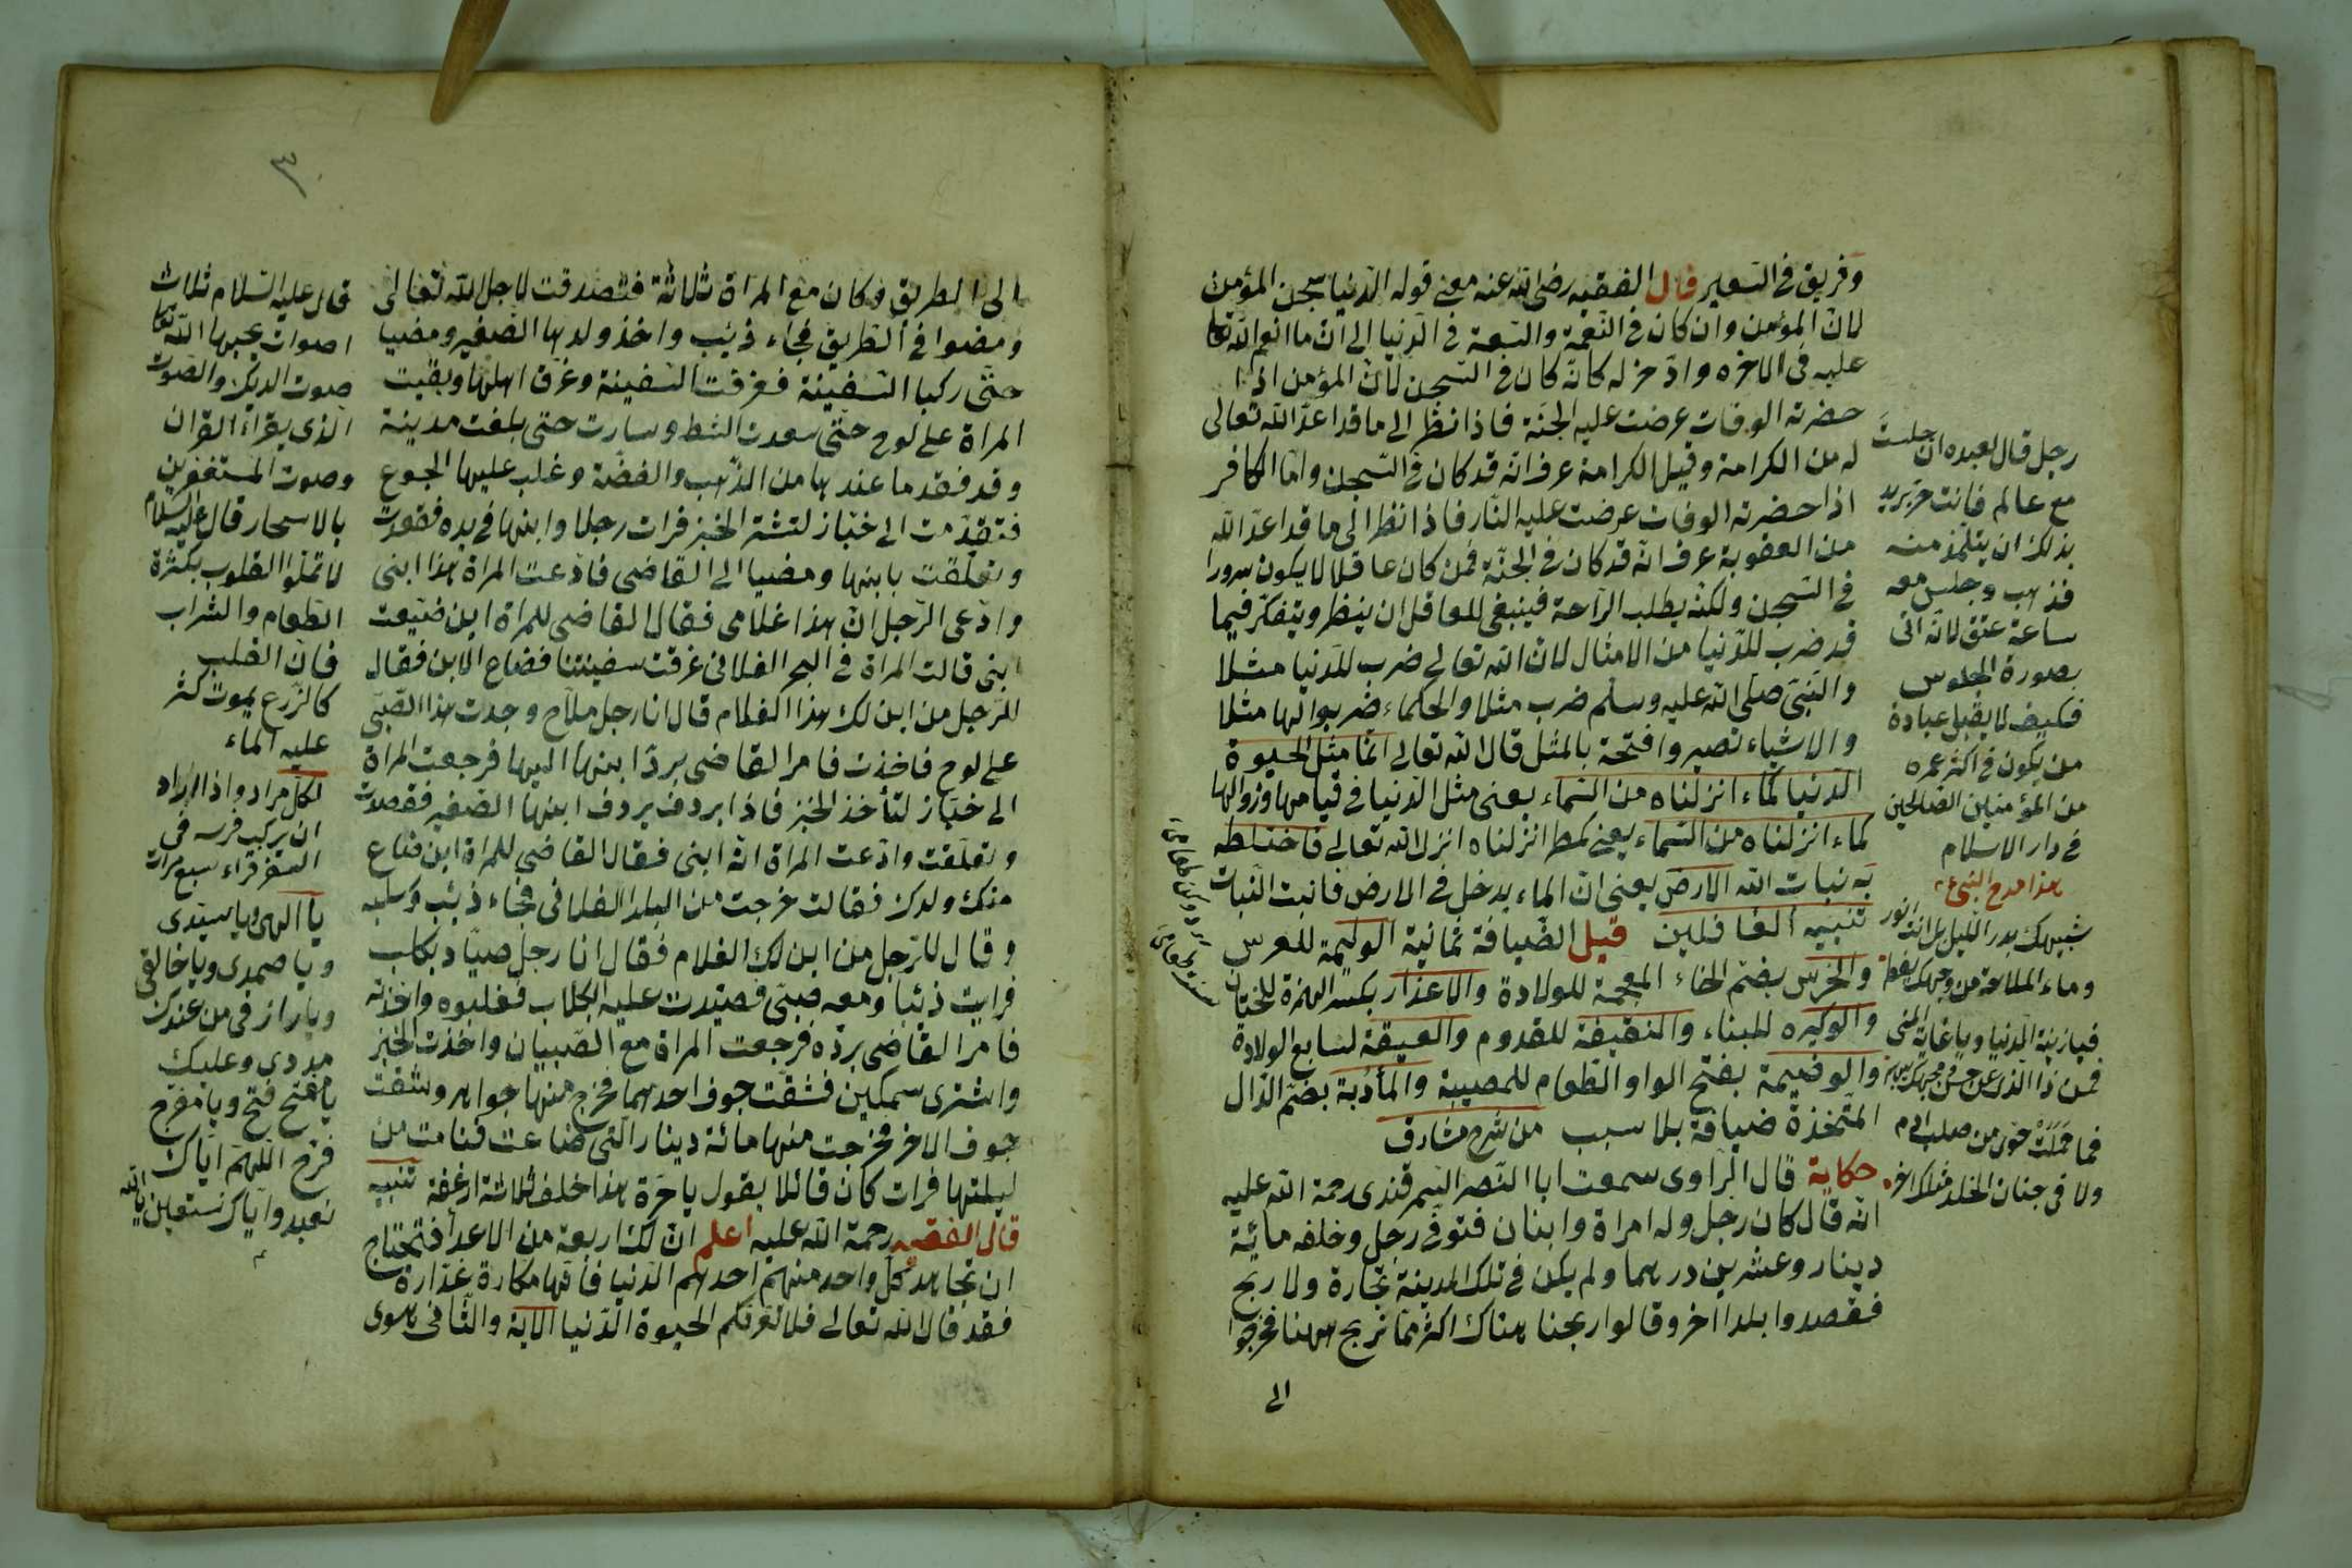 وفريق في السعير قال الفقيه رضى الله عنه معنى قوله الدنيا سجن المؤمن
لانّ المؤمن وان كان في النّعمة والسّعة في الدّنيا الى انّ ما انعم الله تعا
عليه في الاخره وادّخر له كانّه كان في السّجن لانّ المؤمن اذا
حضرته الوفات عرضت عليه الجنّة فاذا نظر الى ما قد اعدّ الله تعالى
له من الكرامة وقيل الكرامة عرف انّه قد كان في السّجن وامّا الكافر
اذا حضرته الوفات عرضت عليه النّار فاذا نظر الى ما قد اعدّ الله
من العقوبة عرف انّه قد كان في الجنّة فمن كان عاقلا لا يكون سرورا
في السّجن ولكنّه يطلب الرّاحة فينبغى للعاقل ان ينظر ويتفكّر فيما
قد ضرب للدّنيا من الامثال لانّ الله تعالى ضرب للدّنيا مثلا
والنّبىّ صلّى الله عليه وسلّم ضرب مثلا والحكماء ضربوا لها مثلا
والاشياء تصير وافتحة بالمثل قال الله تعالى انّما مثل الحيوة
الدّنيا كماء انزلناه من السّماء يعنى مثل الدّنيا في قيامها وزوالها
كماء انزلناه من السّماء يعنى كمطر انزلناه انزل الله تعالى فاختلط
به نبات الله الارض يعنى انّ الماء يدخل في الارض فانبت النّبات
تنبيه الغافلين قيل الضّيافة ثمانية الوليمة للعرس
والخرس بضمّ الخاء المعجمة للولادة والاعذار بكسر الهمزة للختان
والوكيره للبناء والنقيعة للقدوم والعقيقة لسابع الولادة
والوضيمة بفتح الواو الطّعام للمصيبة والمأدبة بضمّ الدّال
المتّخذة ضيافة بلا سبب من شرح مشارق
حكاية قال الرّاوى سمعت ابا النّصر السّمرقندى رحمة الله عليه
انّه قال كان رجل وله امراة وابنان فتوفّى رجل وخلفه مائة
دينار وعشرين درهما ولم يكن في تلك المدينة تجارة ولا ربح
فقصدوا بلدا اخر وقالوا ربحنا هناك اكثر ممّا نربح ههنا فخرجوا
الى
رجل قال لعبده ان جلست
مع عالم فانت حرّ يريد
بذلك ان يتلمّذ منه
فذهب وجلس معه
ساعة عتق لانّه اتى
بصورة الجلوس
فكيف لا يقبل عبادة
من يكون في اكثر عمره
من المؤمنين الصّالحين
في دار الاسلام
هذا مدح النبى
شبيهك بدر اللّيل بل انت انور
وماء الملاحة من وجهك يقطر
فيا زينة الدّنيا ويا غاية المنى
فمن ذا الّذى عن حسن وجهك يصبر
فما حملت حوّى من صلب ادم
ولا في جنان الخلد مثلك اخر
٣
الى الطريق وكان مع المراة ثلاثة فتصدقت لاجل الله تعالى
ومضوا في الطّريق فجاء ذئب واخذ ولدها الصّغير ومضيا
حتّى ركبا السّفينة فغرقت السّفينة وغرق اهلها وبقيت
المراة على لوح حتّى سعدت الشط وسارت حتى بلغت مدينة
وقد فقد ما عندها من الذّهب والفضّة وغلب عليها الجوع
فتقدّمت الى خبّاز لتشتر الخبز فرات رجلا وابنها في يده فقصدت
وتعلّقت بابنها ومضيا الى القاضى فادّعت المراة هذا ابنى
وادّعى الرّجل انّ هذا غلامى فقال القاضى للمراة اين ضيّعت
ابنى قالت المراة في البحر الفلانى غرقت سفينتنا فضاع الابن فقال
للرّجل من اين لك هذا الغلام قال انا رجل ملاّح وجدت هذا الصّبى
على لوح فاخذت فامر القاضى بردّ ابنها اليها فرجعت المراة
الى خبّاز لتأخذ الخبز فاذا بردف يردف ابنها الصّغير فقصدت
وتعلّقت وادّعت المراة انّه ابنى فقال القاضى للمراة اين ضاع
منك ولدك فقالت خرجت من البلد الفلانى فجاء ذئب وسلبه
وقال للرّجل من اين لك الغلام فقال انا رجل صيّاد بكلب
فرايت ذئبا ومعه صبىّ فصيّدت عليه الكلاب فغلبوه واخذته
فامر القاضى بردّه فرجعت المراة مع الصّبيان واخذت الخبز
واشترى سمكين فشقّت جوف احدهما فخرج منها جواهر وشقّت
جوف الاخر فخرجت منها مائة دينار الّتى ضاعت فنامت من
ليلتها فرات كان قائلا يقول يا حرّة هذا خلف ثلاثة ارغفة تنبيه
قال الفقيه رحمة الله عليه اعلم انّ لك اربعة من الاعدا فتحتاج
ان تجاهد كلّ واحد منهم احدهم الدّنيا فانّها مكارة غدّارة
فقد قال الله تعالى فلا تغرّنّكم الحيوة الدّنيا الاية والثّانى هوى
قال عليه السّلام ثلاث
اصوات يحبها الله تعا
صوت الديك والصّوت
الّذى يقراء القران
وصوت المستغفرين
بالاسحار قال عليه السّلام
لا تملوا القلوب بكثرة
الطّعام والشّراب
فانّ القلب
كالزّرع يموت كثر
عليه الماء
لكلّ مراد واذا اراد
ان يركب فرسه في
السّفر قراء سبع مرات
يا الهى ويا سيّدى
ويا صمدى ويا خالقى
ويا رازقى من عندك
مددى وعليك
يا مفتّح فتح ويا مفرّج
فرّج اللّهمّ ايّاك
نعبد وايّاك نستعين يا الله